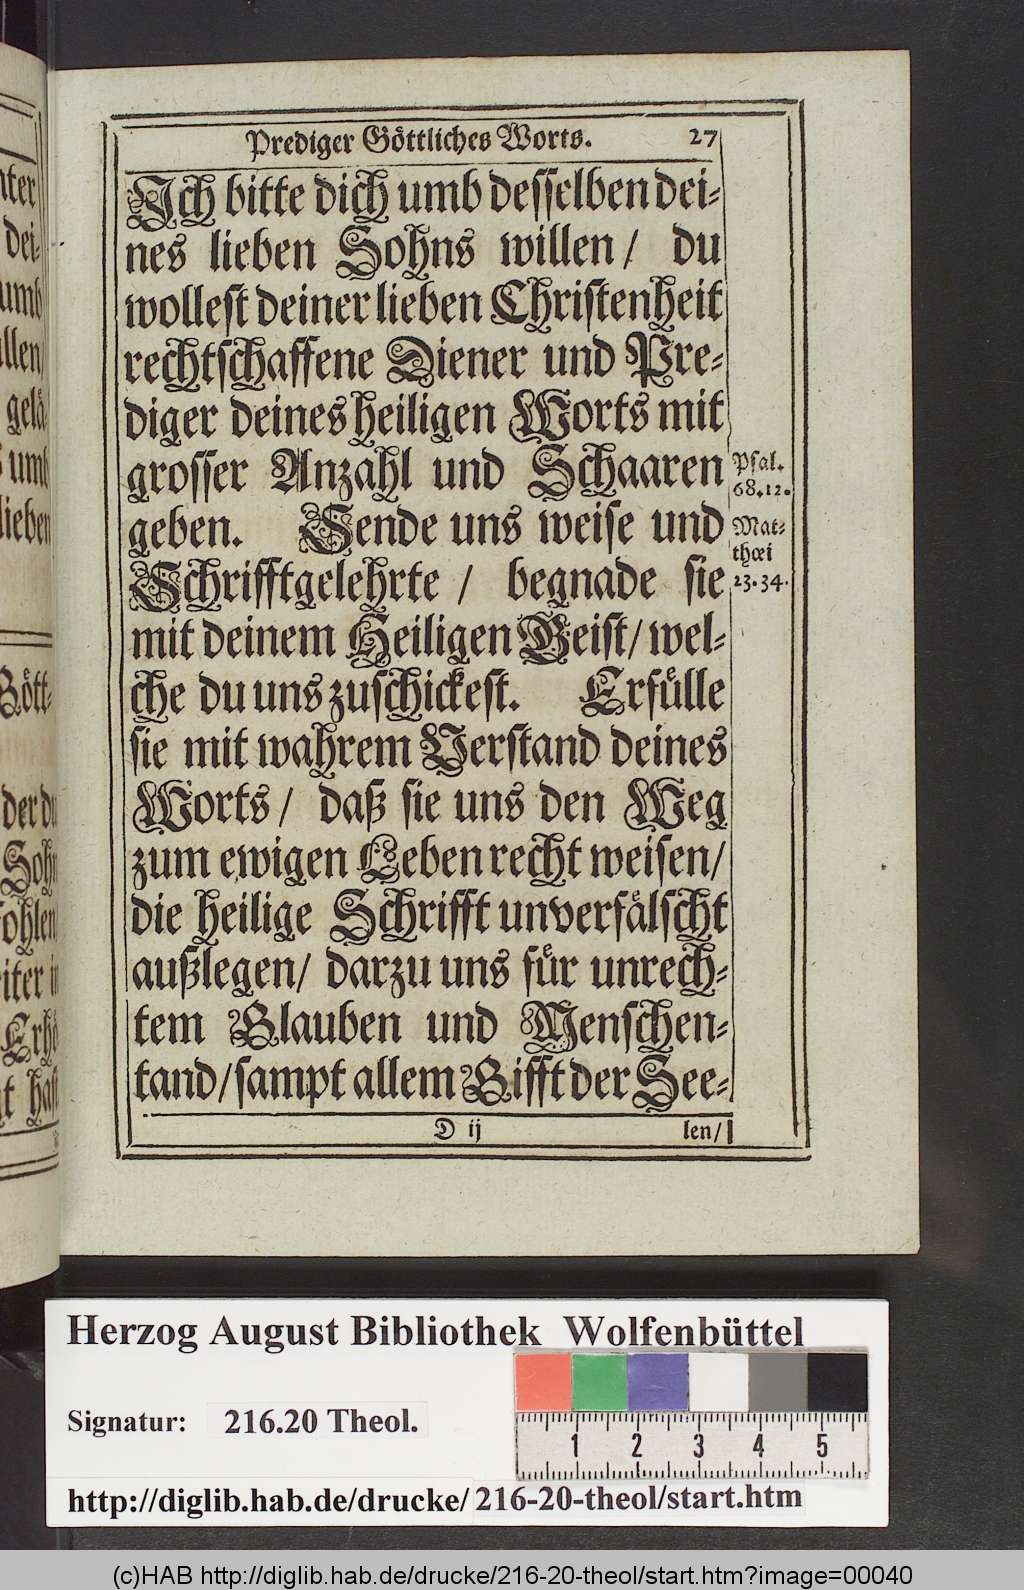 Prediger Göttliches Worts. 27
Ich bitte dich umb desselben dei-
nes lieben Sohns willen / du
wollest deiner lieben Christenheit
rechtschaffene Diener und Pre-
diger deines heiligen Worts mit
grosser Anzahl und Schaaren
geben. Sende uns weise und
Schrifftgelehrte / begnade sie
mit deinem Heiligen Geist / wel-
che du uns zuschickest. Erfülle
sie mit wahrem Verstand deines
Worts / daß sie uns den Weg
zum ewigen Leben recht weisen /
die heilige Schrifft unverfälscht
außlegen / darzu uns für unrech-
tem Glauben und Menschen-
tand / sampt allem Gifft der See-
D ij len /
Psal.
68.12.
Mat-
thœi
23.34.
nter
dei-
umb
llen /
gelä
umb
lieben
Gött-
der du
Sohn
fohlen
iter in
Erhö
t hast
Herzog August Bibliothek Wolfenbüttel
Signatur: 216.20 Theol.
1 2 3 4 5
http://diglib.hab.de/drucke/216-20-theol/start.htm
(c)HAB http://diglib.hab.de/drucke/216-20-theol/start.htm?image=00040